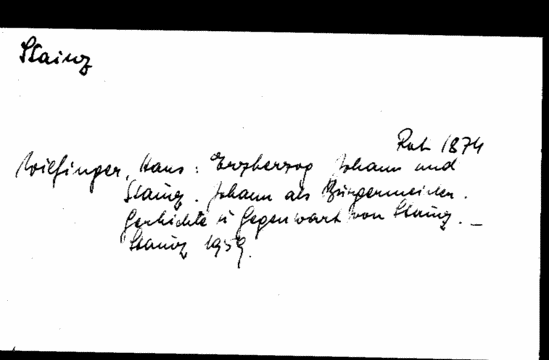 Stainz
Rat 1874
Wilfinger, Hans: Erzherzog Johann und
Stainz. Johann als Bürgermeister.
Geschichte u Gegenwart von Stainz. —
Stainz 1959.